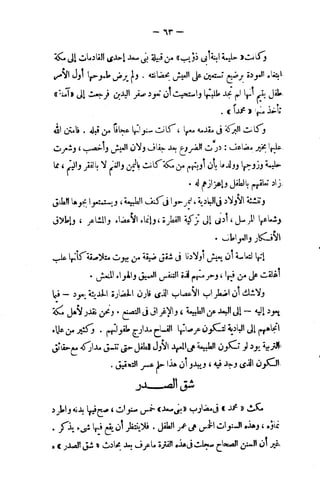 — ٦٣ —
وكانت « حليمة ابنة أبى ذؤيب » من قبيلة بنى سعد إحدى القادمات إلى مكة
ابتغاء العودة برضيع تستعين على العيش بحضانته . ولم يرض طموحها أول الأمر
طفل يتيم إلا أنها لم تجد طلبتها واستحيت أن تعود صفر اليدين فرجعت إلى « آمنة »
تأخذ منها « محمداً » .
وكانت البركة فى مقدمه معها ، كانت سنواتها عجافاً من قبله . فامتن الله
عليها بخير مضاعف : درّت الضروع بعد جفاف ولان العيش وأخصب ، وشعرت
حليمة وزوجها وولدها بأن أوبتهم من مكة كانت باليمن والغنم لا بالفقر واليتم ، مما
زاد تعلقهم بالطفل وإعزازهم له .
وتنشئة الأولاد فى البادية ، ليمرحوا فى كنف الطبيعة ، ويستمتعوا بجوها الطلق
وشعاعها المرسل ، أدنى إلى تزكية الفطرة ، وإنماء الأعضاء والمشاعر ، وإطلاق
الأفكار والعواطف .
إنها لتعاسة أن يعيش أولادنا فى شقق ضيقة من بيوت متلاصقة كأنها علب
أغلقت على من فيها ، وحرمتهم لذة التنفس العميق والهواء المنعش .
ولاشك أن اضطراب الأعصاب الذى قارن الحضارة الحديثة يعود — فيما
يعود إليه — إلى البعد عن الطبيعة ، والإغراق فى التصنع . ونحن نقدر لأهل مكة
اتجاههم إلى البادية لتكون عرصاتها الفساح مدارج طفولتهم . وكثير من علماء
التربية يود لو تكون الطبيعة هى المعهد الأول للطفل حتى تتسق مداركه مع حقائق
الكون الذى وجد فيه ، ويبدو أن هذا حلم عسر التحقيق .
شق الصــدر
مكث « محمد » فى مضارب « بنى سعد » خمس سنوات ، صح فيها بدنه واطرد
نماؤه ، وهذه السنوات الخمس هى عمر الطفل . فلا ينتظر أن يقع فيها شىء يذكر .
غير أن السنن الصحاح سجلت فى هذه الفترة ما عرف بعد بحادث « شق الصدر » .